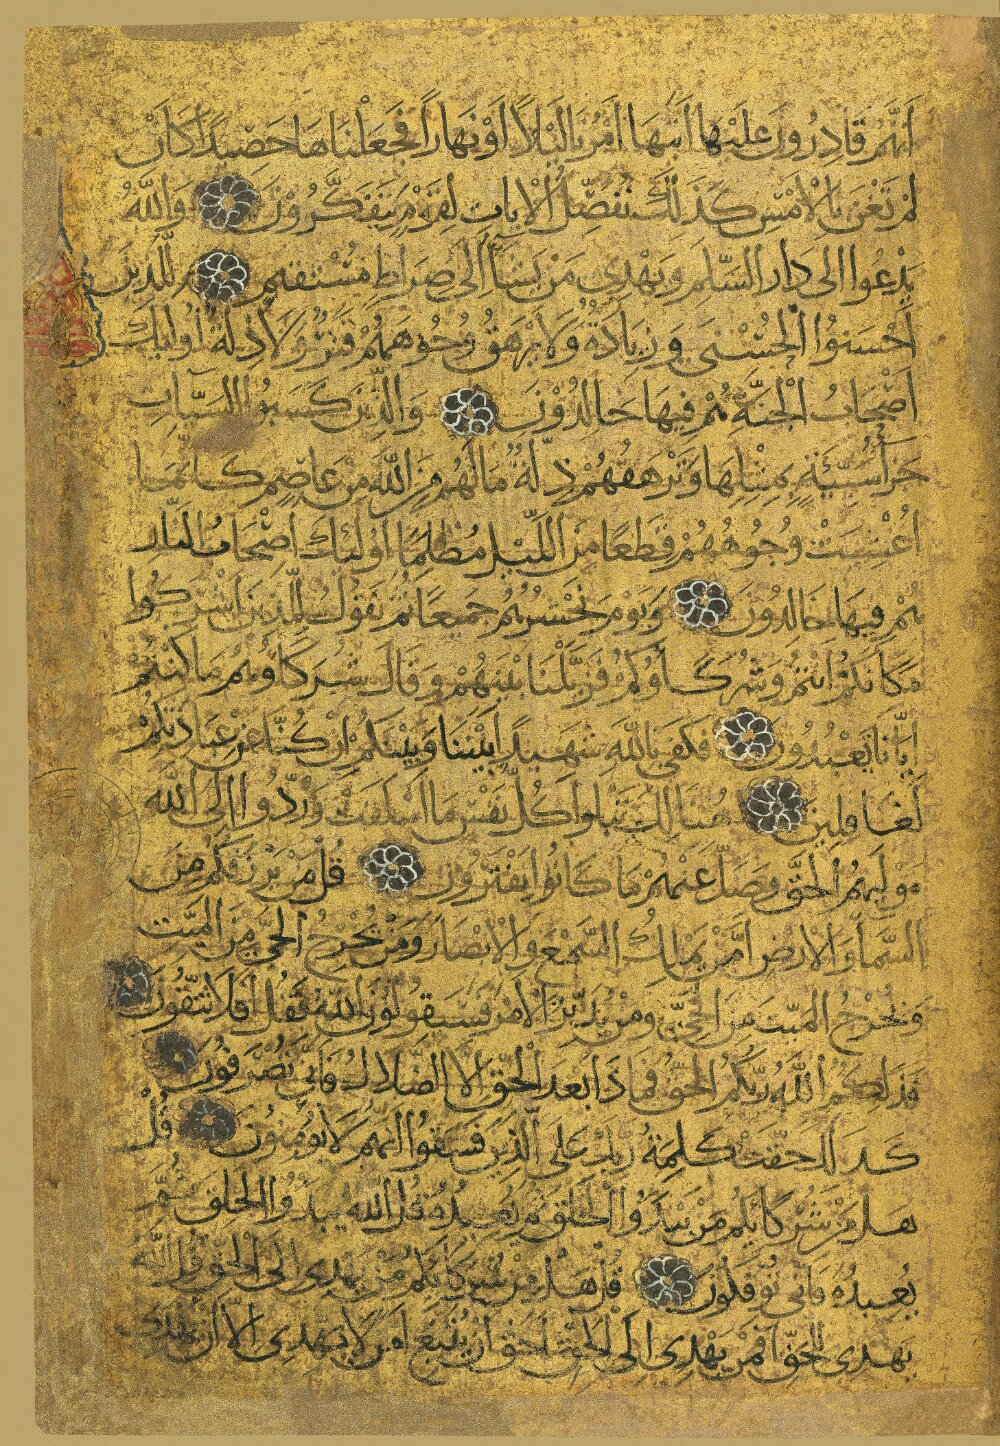 أَنَّهُمْ قَادِرُونَ عَلَيْهَا أَتَيهَا أَمْرُنَا لَيْلًا أَوْ نَهَارًا فَجَعَلْنَاهَا حَصِيدًا كَأَنْ
لَمْ تَغْنَ بِالْأَمْسِ كَذَلِكَ نُفَصِّلُ الْآيَاتِ لِقَوْمٍ يَتَفَكَّرُونَ وَاللَّهُ
يَدْعُوا إِلَى دَارِ السَّلَمِ وَيَهْدِي مَنْ يَشَآءُ إِلَى صِرَاطٍ مُسْتَقِيمٍ لِلَّذِينَ
أَحْسَنُوا الْحُسْنَى وَزِيَادَةٌ وَلَا يَرْهَقُ وُجُوهَهُمْ قَتَرٌ وَلَا ذِلَّةٌ أُولَئِكَ
أَصْحَابُ الْجَنَّةِ هُمْ فِيهَا خَالِدُونَ وَالَّذِينَ كَسَبُوا السَّيِّآتِ
جَزَاءُ سَيِّئَةٍ بِمِثْلِهَا وَتَرْهَقُهُمْ ذِلَّةٌ مَا لَهُمْ مِنَ اللَّهِ مِنْ عَاصِمٍ كَأَنَّمَا
أُغْشِيَتْ وُجُوهُهُمْ قِطَعًا مِنَ اللَّيْلِ مُظْلِمًا أُولَئِكَ أَصْحَابُ النَّارِ
هُمْ فِيهَا خَالِدُونَ وَيَوْمَ نَحْشُرُهُمْ جَمِيعًا ثُمَّ نَقُولُ لِلَّذِينَ أَشْرَكُوا
مَكَانَكُمْ أَنْتُمْ وَشُرَكَاؤُكُمْ فَزَيَّلْنَا بَيْنَهُمْ وَقَالَ شُرَكَاؤُهُمْ مَا كُنْتُمْ
إِيَّانَا تَعْبُدُونَ فَكَفَى بِاللَّهِ شَهِيدًا بَيْنَنَا وَبَيْنَكُمْ إِنْ كُنَّا عَنْ عِبَادَتِكُمْ
لَغَافِلِينَ هُنَالِكَ تَبْلُوا كُلُّ نَفْسٍ مَا أَسْلَفَتْ وَرُدُّوا إِلَى اللَّهِ
مَوْلَيهُمُ الْحَقِّ وَضَلَّ عَنْهُمْ مَا كَانُوا يَفْتَرُونَ قُلْ مَنْ يَرْزُقُكُمْ مِنَ
السَّمَاءِ وَالْأَرْضِ أَمَّنْ يَمْلِكُ السَّمْعَ وَالْأَبْصَارَ وَمَنْ يُخْرِجُ الْحَيَّ مِنَ الْمَيِّتِ
وَيُخْرِجُ الْمَيِّتَ مِنَ الْحَيِّ وَمَنْ يُدَبِّرُ الْأَمْرَ فَسَيَقُولُونَ اللَّهُ فَقُلْ أَفَلَا تَتَّقُونَ
فَذَلِكُمُ اللَّهُ رَبُّكُمُ الْحَقُّ فَمَاذَا بَعْدَ الْحَقِّ إِلَّا الضَّلَالُ فَأَنَّى تُصْرَفُونَ
كَذَلِكَ حَقَّتْ كَلِمَةُ رَبِّكَ عَلَى الَّذِينَ فَسَقُوا أَنَّهُمْ لَا يُؤْمِنُونَ قُلْ
هَلْ مِنْ شُرَكَائِكُمْ مَنْ يَبْدَؤُا الْخَلْقَ ثُمَّ يُعِيدُهُ قُلِ اللَّهُ يَبْدَؤُا الْخَلْقَ ثُمَّ
يُعِيدُهُ فَأَنَّى تُؤْفَكُونَ قُلْ هَلْ مِنْ شُرَكَائِكُمْ مَنْ يَهْدِي إِلَى الْحَقِّ قُلِ اللَّهُ
يَهْدِي لِلْحَقِّ أَفَمَنْ يَهْدِي إِلَى الْحَقِّ أَحَقُّ أَنْ يُتَّبَعَ أَمَّنْ لَا يَهِدِّي إِلَّا أَنْ يُهْدَى